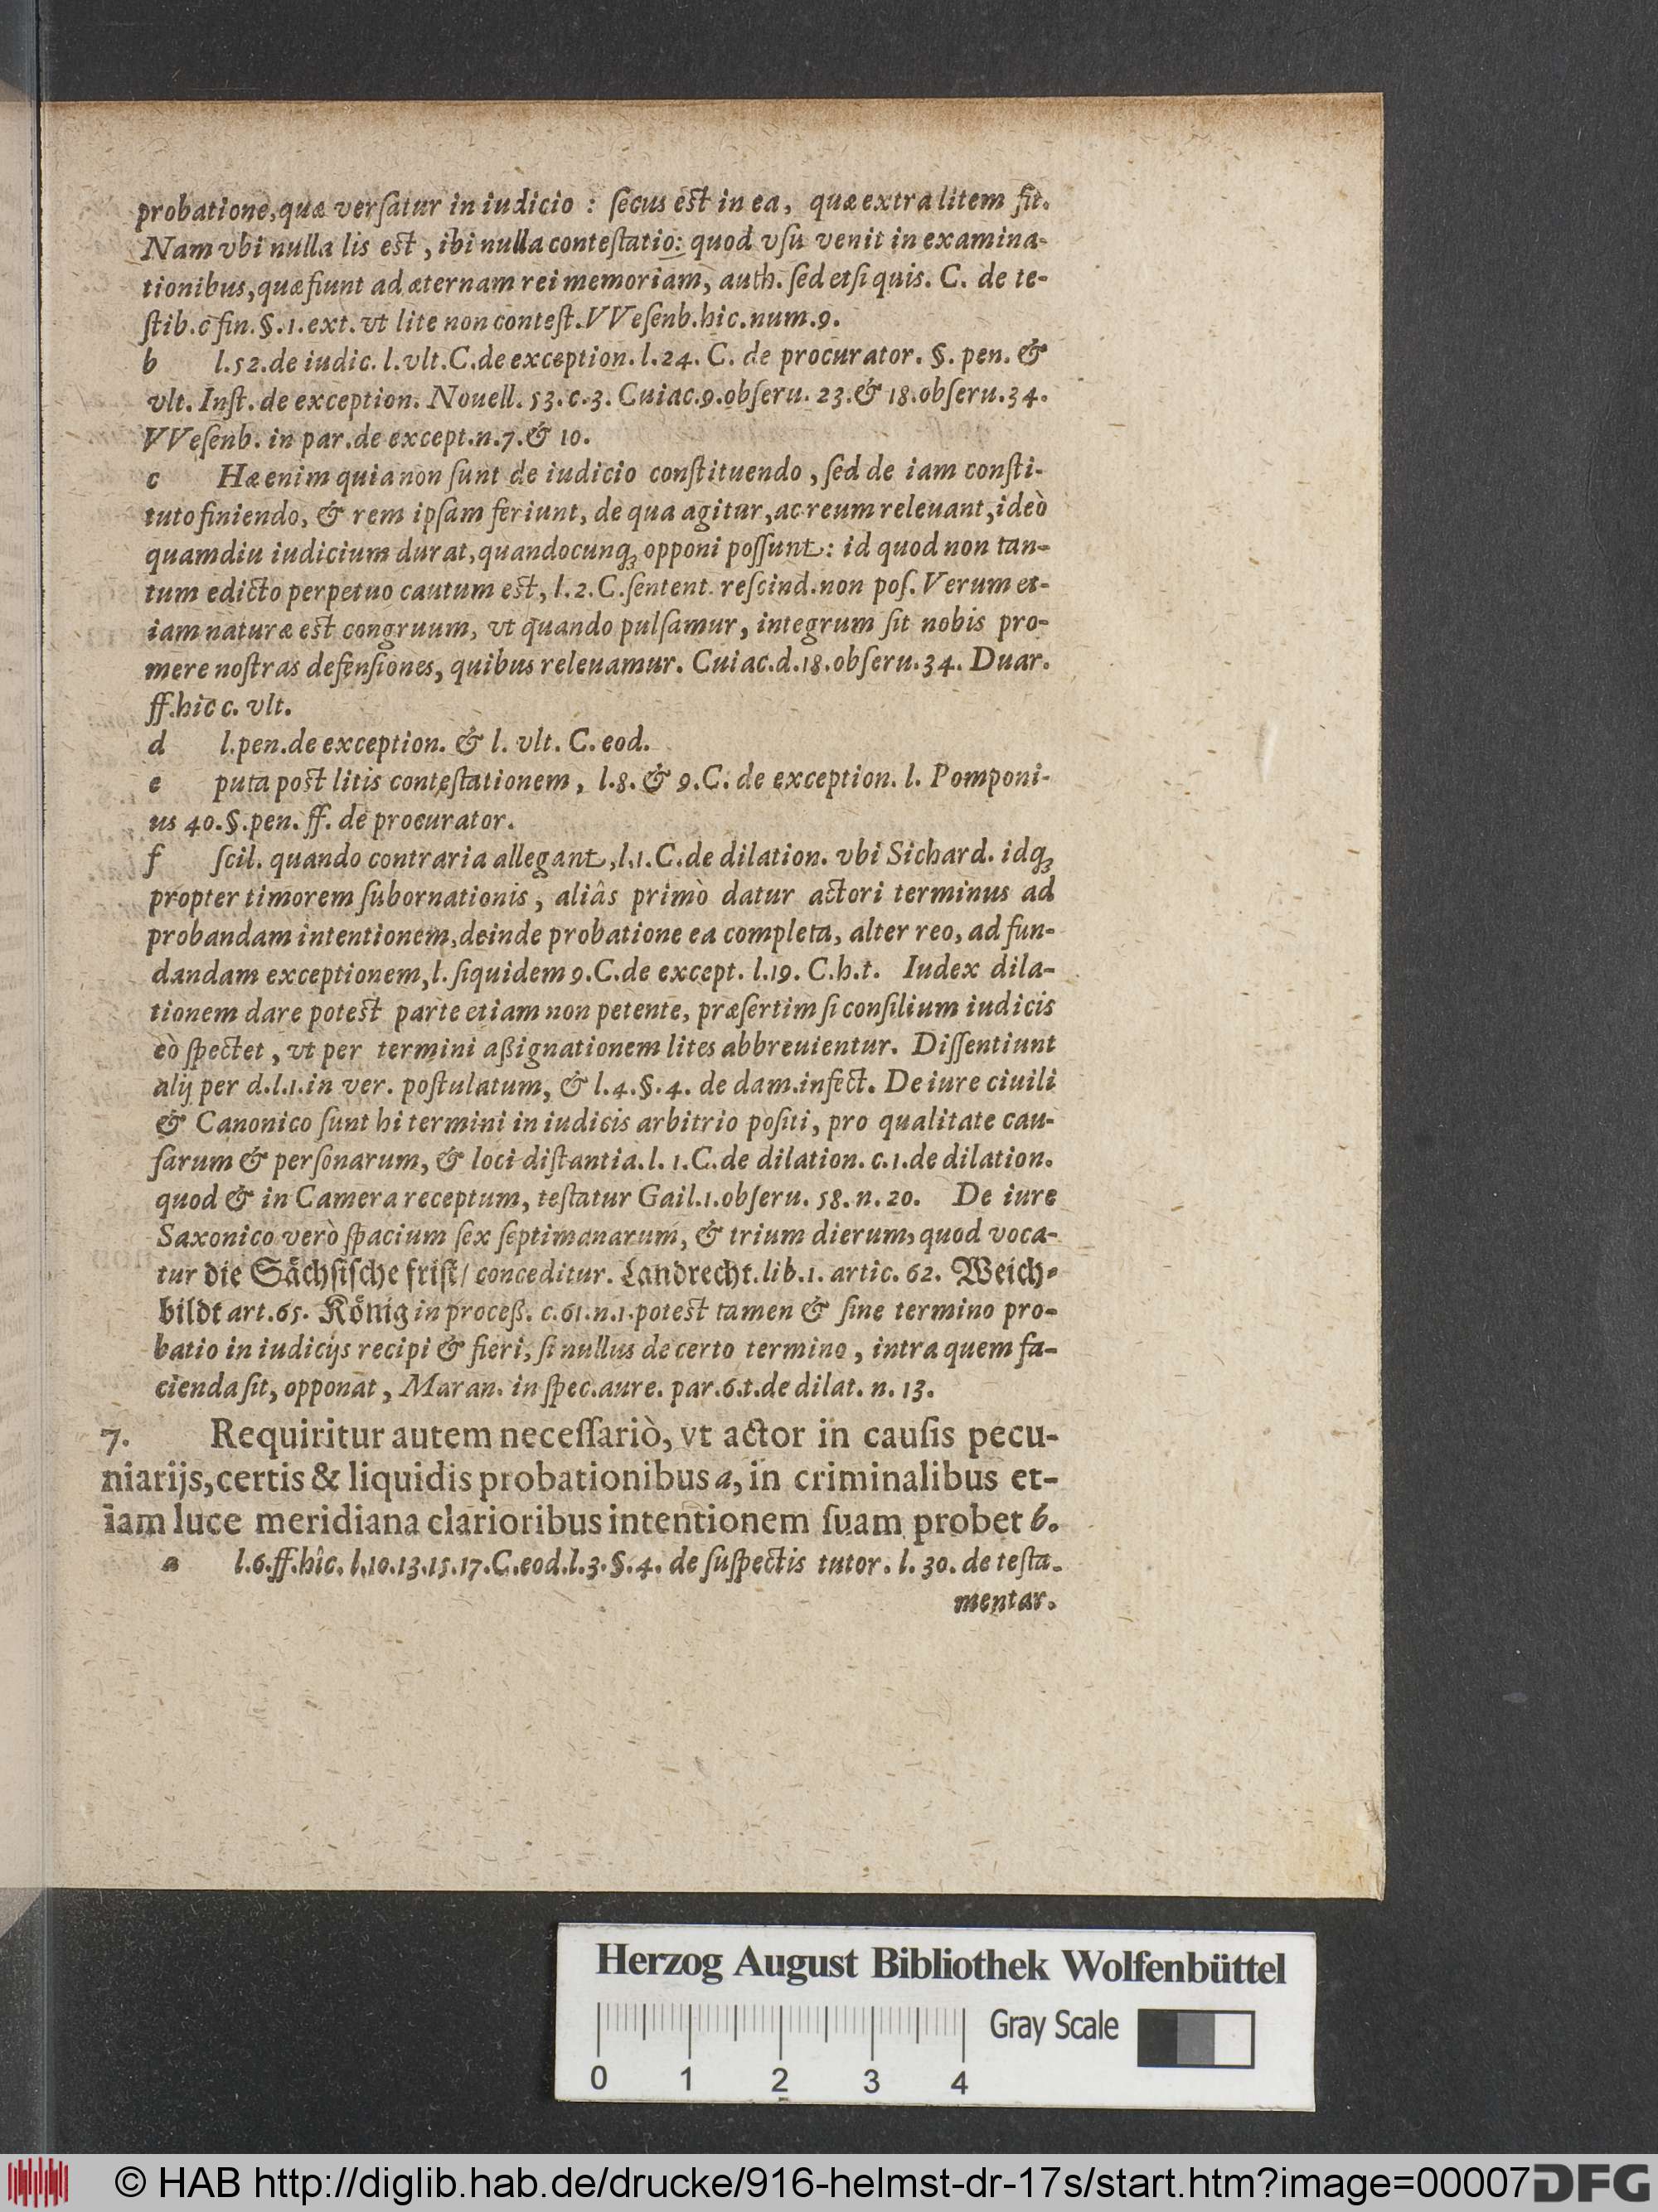 probatione, quæ verſatur in iudicio : ſecus est in ea, quæ extra litem fit.
Nam vbi nulla lis est, ibi nulla conteſtatio: quod vſu venit in examina-
tionibus, quæ fiunt ad æternam rei memoriam, auth. ſed etſi quis. C. de te-
ſtib. c fin. §. 1. ext. vt lite non conteſt. VVeſenb. hic. num. 9.
b l. 52. de iudic. l. vlt. C. de exception. l. 24. C. de procurator. §. pen. &
vlt. Inſt. de exception. Nouell. 53. c. 3. Cuiac. 9. obſeru. 23. & 18. obſeru. 34.
VVeſenb. in par. de except. n. 7. & 10.
c Hæ enim quia non ſunt de iudicio conſtituendo, ſed de iam conſti-
tuto finiendo, & rem ipſam feriunt, de qua agitur, ac reum releuant, ideò
quamdiu iudicium durat, quandocunq; opponi poſſunt: id quod non tan-
tum edicto perpetuo cautum est, l. 2. C. ſentent. reſcind. non poſ. Verum et-
iam naturæ est congruum, vt quando pulſamur, integrum ſit nobis pro-
mere noſtras defenſiones, quibus releuamur. Cuiac. d. 18. obſeru. 34. Duar.
ff. hîc c. vlt.
d l. pen. de exception. & l. vlt. C. eod.
e puta post litis conteſtationem, l. 8. & 9. C. de exception. l. Pomponi-
us 40. §. pen. ff. de procurator.
f ſcil. quando contraria allegant, l. 1. C. de dilation. vbi Sichard. idq;
propter timorem ſubornationis, aliâs primò datur actori terminus ad
probandam intentionem, deinde probatione ea completa, alter reo, ad fun-
dandam exceptionem, l. ſiquidem 9. C. de except. l. 19. C. h. t. Iudex dila-
tionem dare potest parte etiam non petente, præſertim ſi conſilium iudicis
eò ſpectet, vt per termini aßignationem lites abbreuientur. Diſſentiunt
alij per d. l. 1. in ver. poſtulatum, & l. 4. §. 4. de dam. infect. De iure ciuili
& Canonico ſunt hi termini in iudicis arbitrio poſiti, pro qualitate cau-
ſarum & perſonarum, & loci diſtantia. l. 1. C. de dilation. c. 1. de dilation.
quod & in Camera receptum, teſtatur Gail. 1. obſeru. 58. n. 20. De iure
Saxonico verò ſpacium ſex ſeptimanarum, & trium dierum, quod voca-
tur die Sächſiſche friſt/ conceditur. Landrecht. lib. 1. artic. 62. Weich-
bildt art. 65. König in proceß. c. 61. n. 1. potest tamen & ſine termino pro-
batio in iudicijs recipi & fieri, ſi nullus de certo termino, intra quem fa-
cienda ſit, opponat, Maran. in ſpec. aure. par. 6. t. de dilat. n. 13.
7. Requiritur autem neceſſariò, vt actor in cauſis pecu-
niarijs, certis & liquidis probationibus a, in criminalibus et-
iam luce meridiana clarioribus intentionem ſuam probet b.
a l. 6. ff. hîc. l. 10. 13. 15. 17. C. eod. l. 3. §. 4. de ſuſpectis tutor. l. 30. de teſta-
mentar.
Herzog August Bibliothek Wolfenbüttel
Gray Scale
0 1 2 3 4
© HAB http://diglib.hab.de/drucke/916-helmst-dr-17s/start.htm?image=00007
DFG